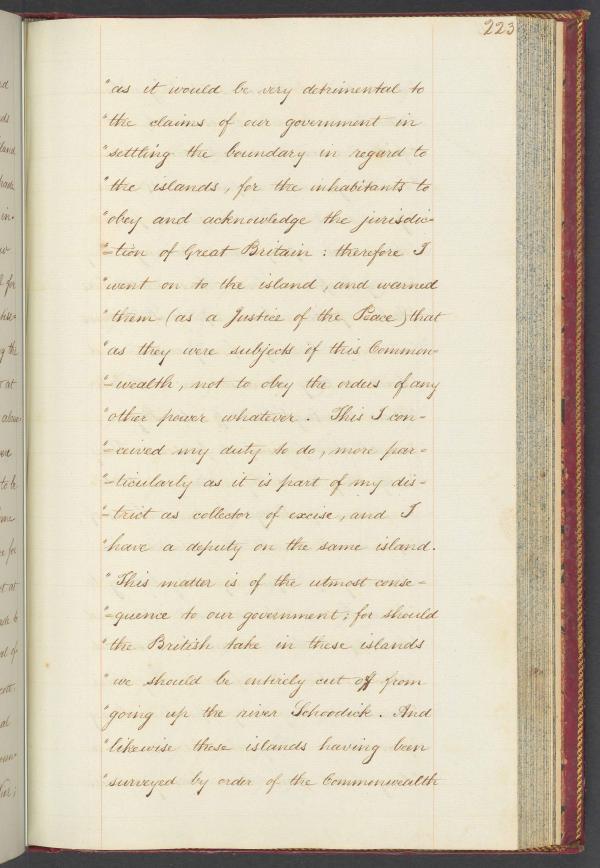 223
"as it would be very detrimental to
"the claims of our government in
"settling the boundary in regard to
"the islands, for the inhabitants to
"obey and acknowledge the jurisdic-
"-tion of Great Britain: therefore I
"went on to the island, and warned
"them (as a Justice of the Peace) that
"as they were subjects of this Common-
"-wealth, not to obey the orders of any
"other power whatever. This I con-
"-ceived my duty to do, more par-
"-ticularly as it is part of my dis-
"-trict as collector of excise, and I
"have a deputy on the same island.
"This matter is of the utmost conse-
"-quence to our government; for should
"the British take in these islands
"we should be entirely cut off from
"going up the river Schoodick. And
"likewise these islands having been
"surveyed by order of the Commonwealth